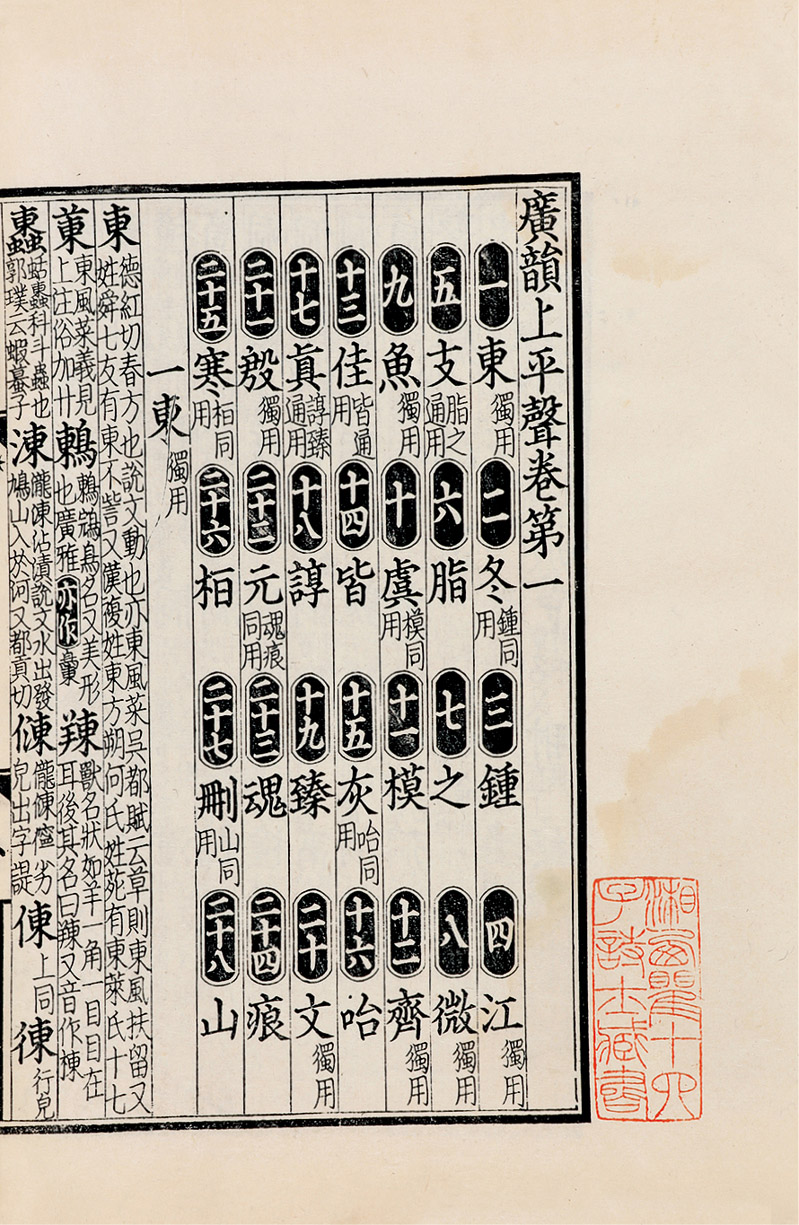 廣韻上平聲卷第一
一東獨用 二冬鍾同用 三鍾 四江獨用
五支脂之通用 六脂 七之 八微獨用
九魚獨用 十虞模同用 十一模 十二齊獨用
十三佳皆通用 十四皆 十五灰咍同用 十六咍
十七真諄臻通用 十八諄 十九臻 二十文獨用
二十一殷獨用 二十二元魂痕同用 二十三魂 二十四痕
二十五寒桓同用 二十六桓 二十七刪山同用 二十八山
一東獨用
東德紅切春方也說文動也亦東風菜吳都賦云草則東風扶留又
姓舜七友有東不訾又漢複姓東方朔何氏姓苑有東萊氏十七
菄東風菜義見上注俗加艹鶇鶇鵍鳥名又美形也廣雅亦作䍶䍶獸名狀如羊一角一目目在耳後其名曰䍶又音作棟
蝀蛄蝀科斗蟲也郭璞云蝦蟇子涷瀧涷沾漬說文水出發鳩山入於河又都貢切㑈儱㑈儜劣皃出字諟倲上同徚行皃